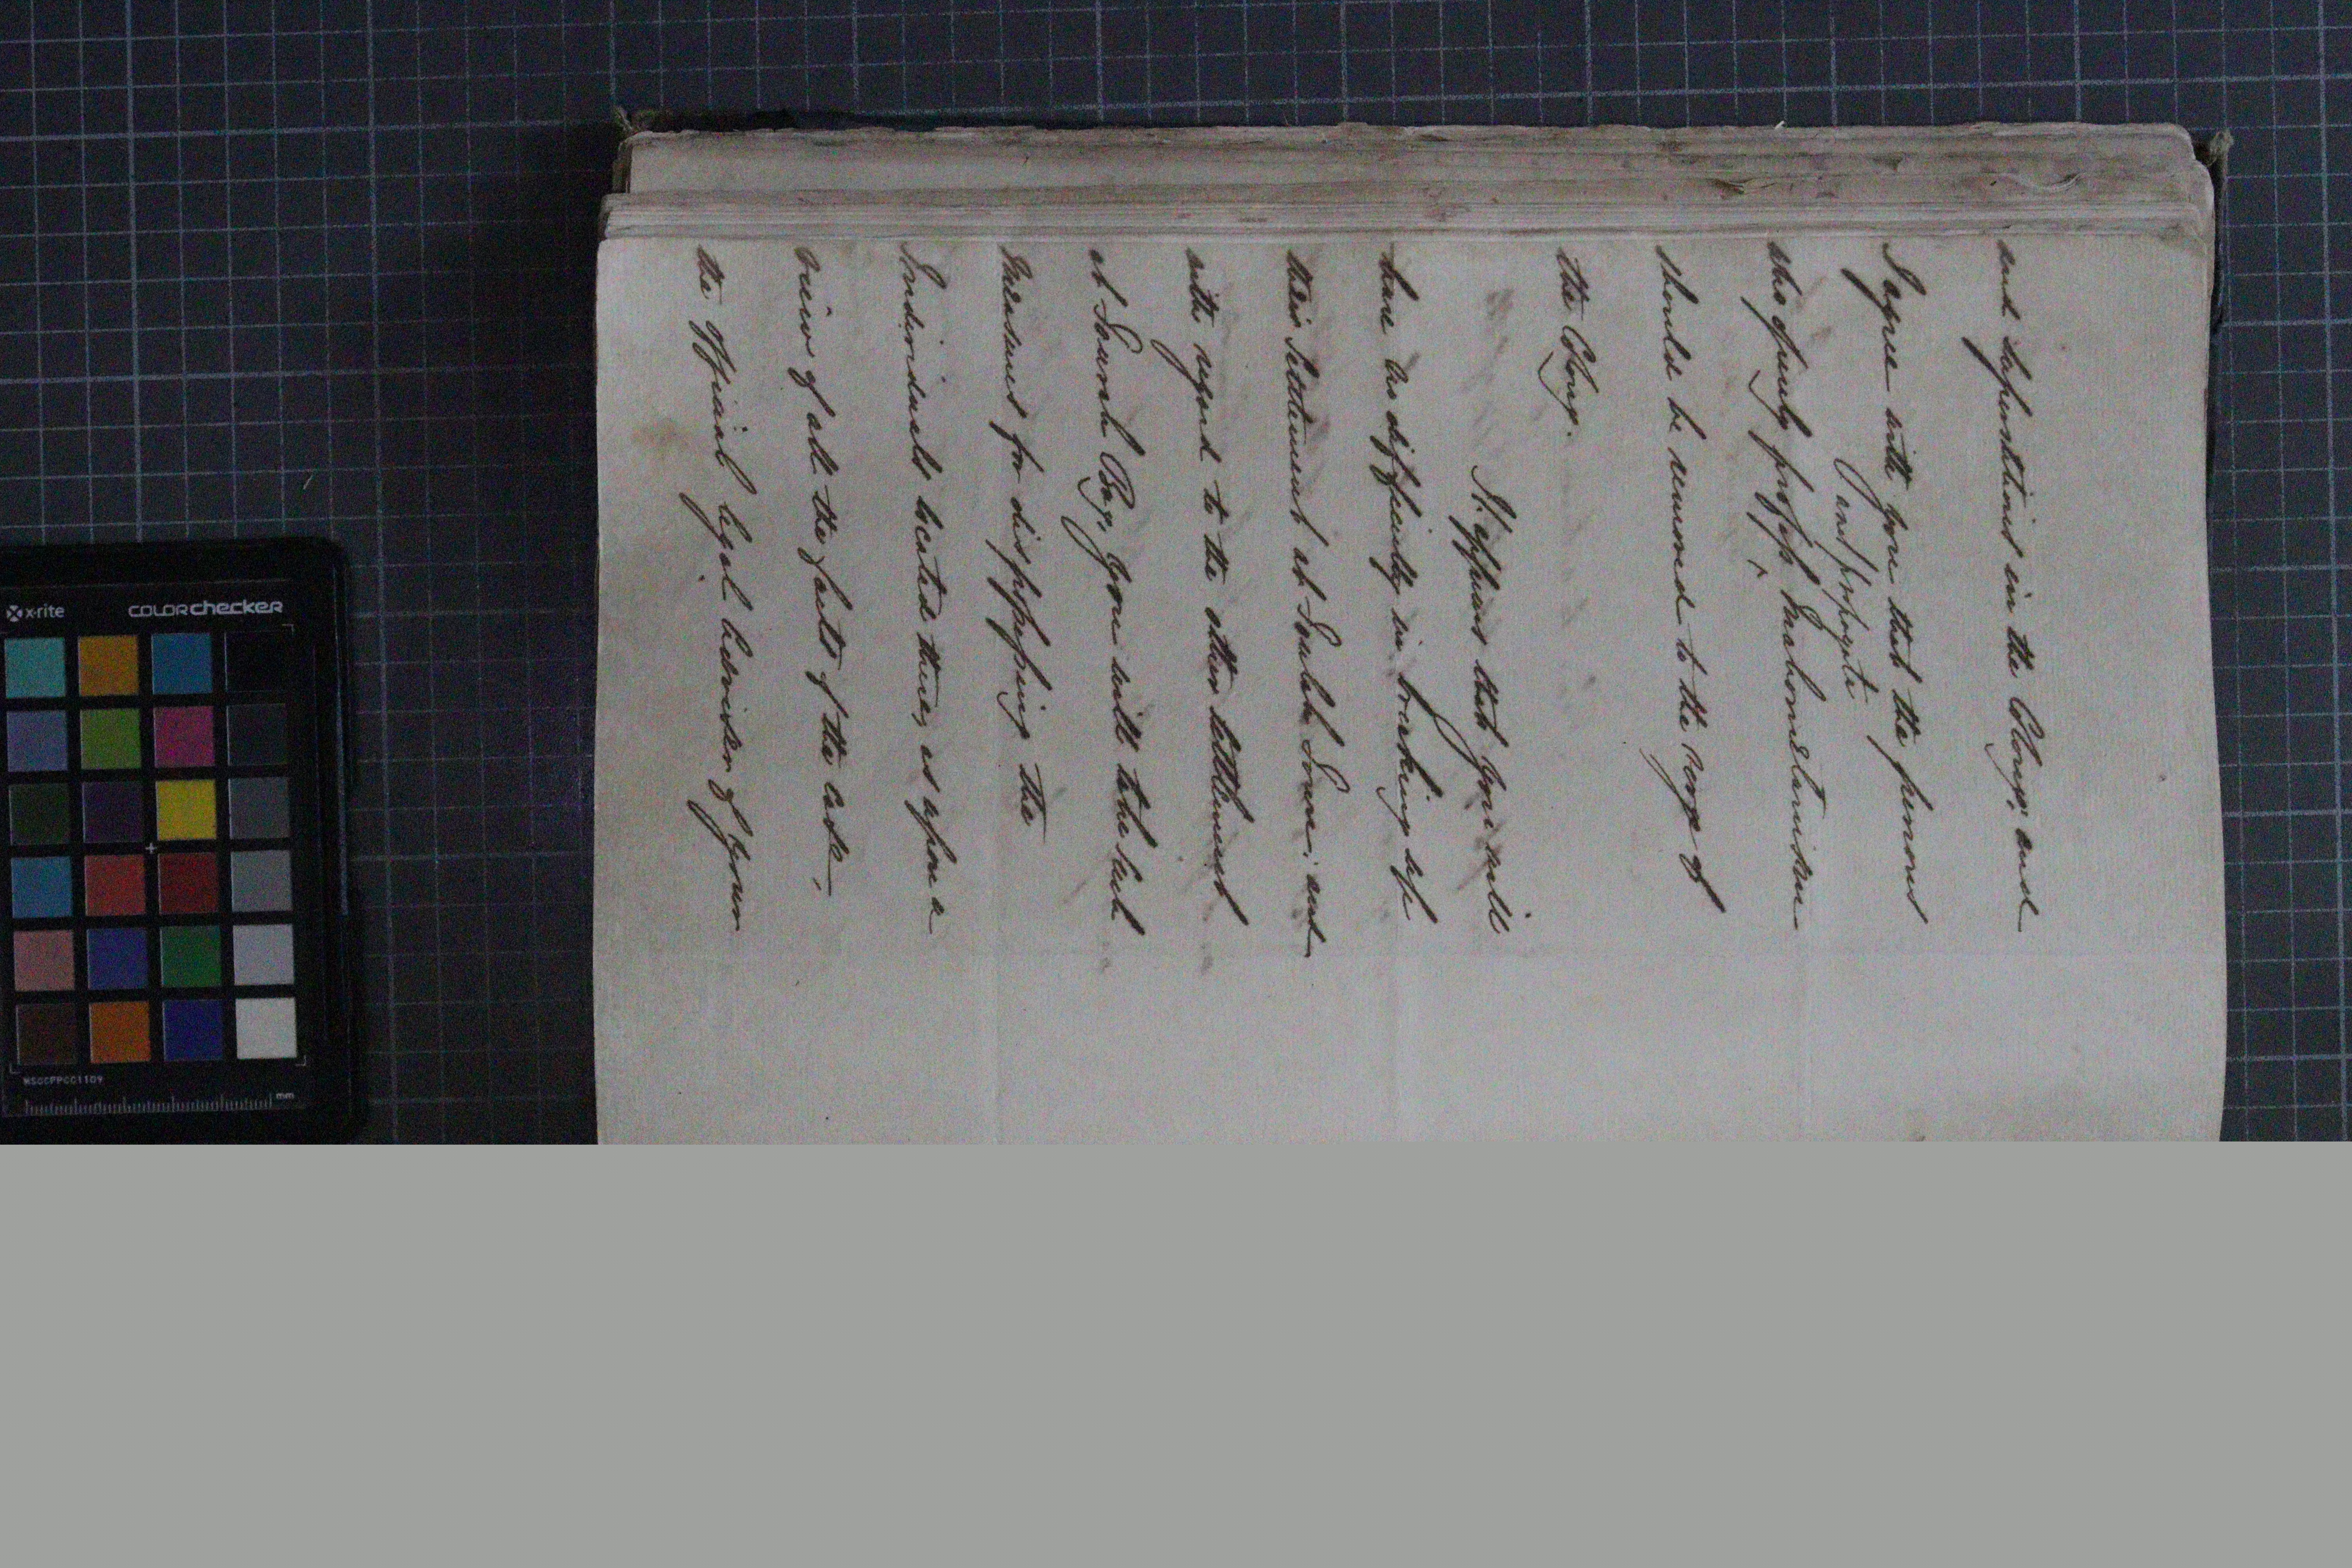 and Superstitions in the Colony; and
I agree with you that the persons
and propagate
who openly profess ^ Mahometanism
should be removed to the verge of
the Colony.
It appears that you will
have no difficulty in breaking up
their Settlement at Foulah Town; and
with regard to the other Settlement
at Fourah Bay, you will take such
Measures for dispossessing the
Individuals located there, as upon a
view of all the facts of the case,
the official legal Advisers of your
x·rite colorchecker
MSCCPPCC1109
mm